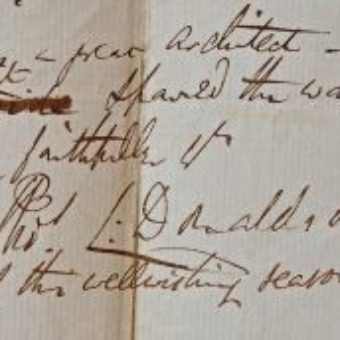 a great architect –
spared the wo
faithfully yrs
Thos. L: Donaldso
this wellwishing season